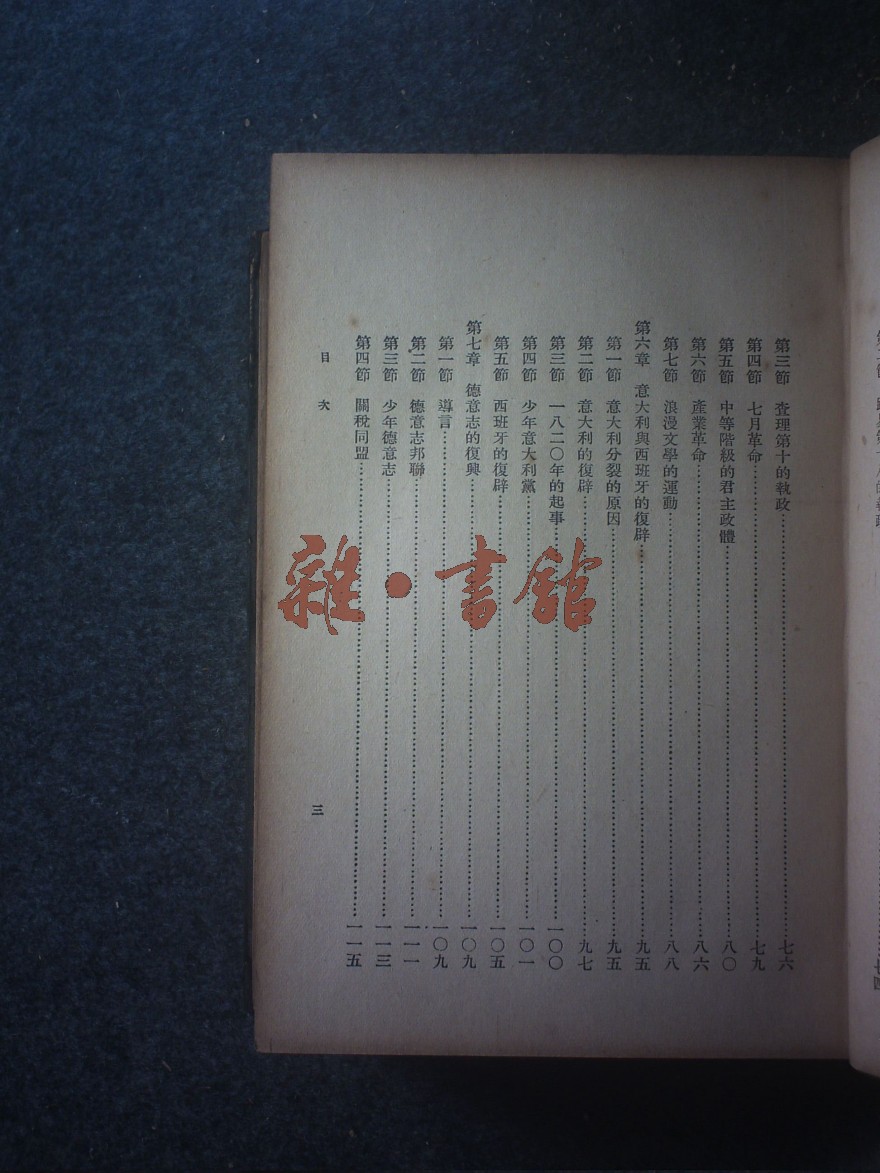 第三節 查理第十的執政……七六
第四節 七月革命……七九
第五節 中等階級的君主政體……八〇
第六節 產業革命……八六
第七節 浪漫文學的運動……八八
第六章 意大利與西班牙的復辟……九五
第一節 意大利分裂的原因……九五
第二節 意大利的復辟……九七
第三節 一八二〇年的起事……一〇〇
第四節 少年意大利黨……一〇一
第五節 西班牙的復辟……一〇五
第七章 德意志的復興……一〇九
第一節 導言……一〇九
第二節 德意志邦聯……一一一
第三節 少年德意志……一一三
第四節 關稅同盟……一一五
目次
三
雜·書館